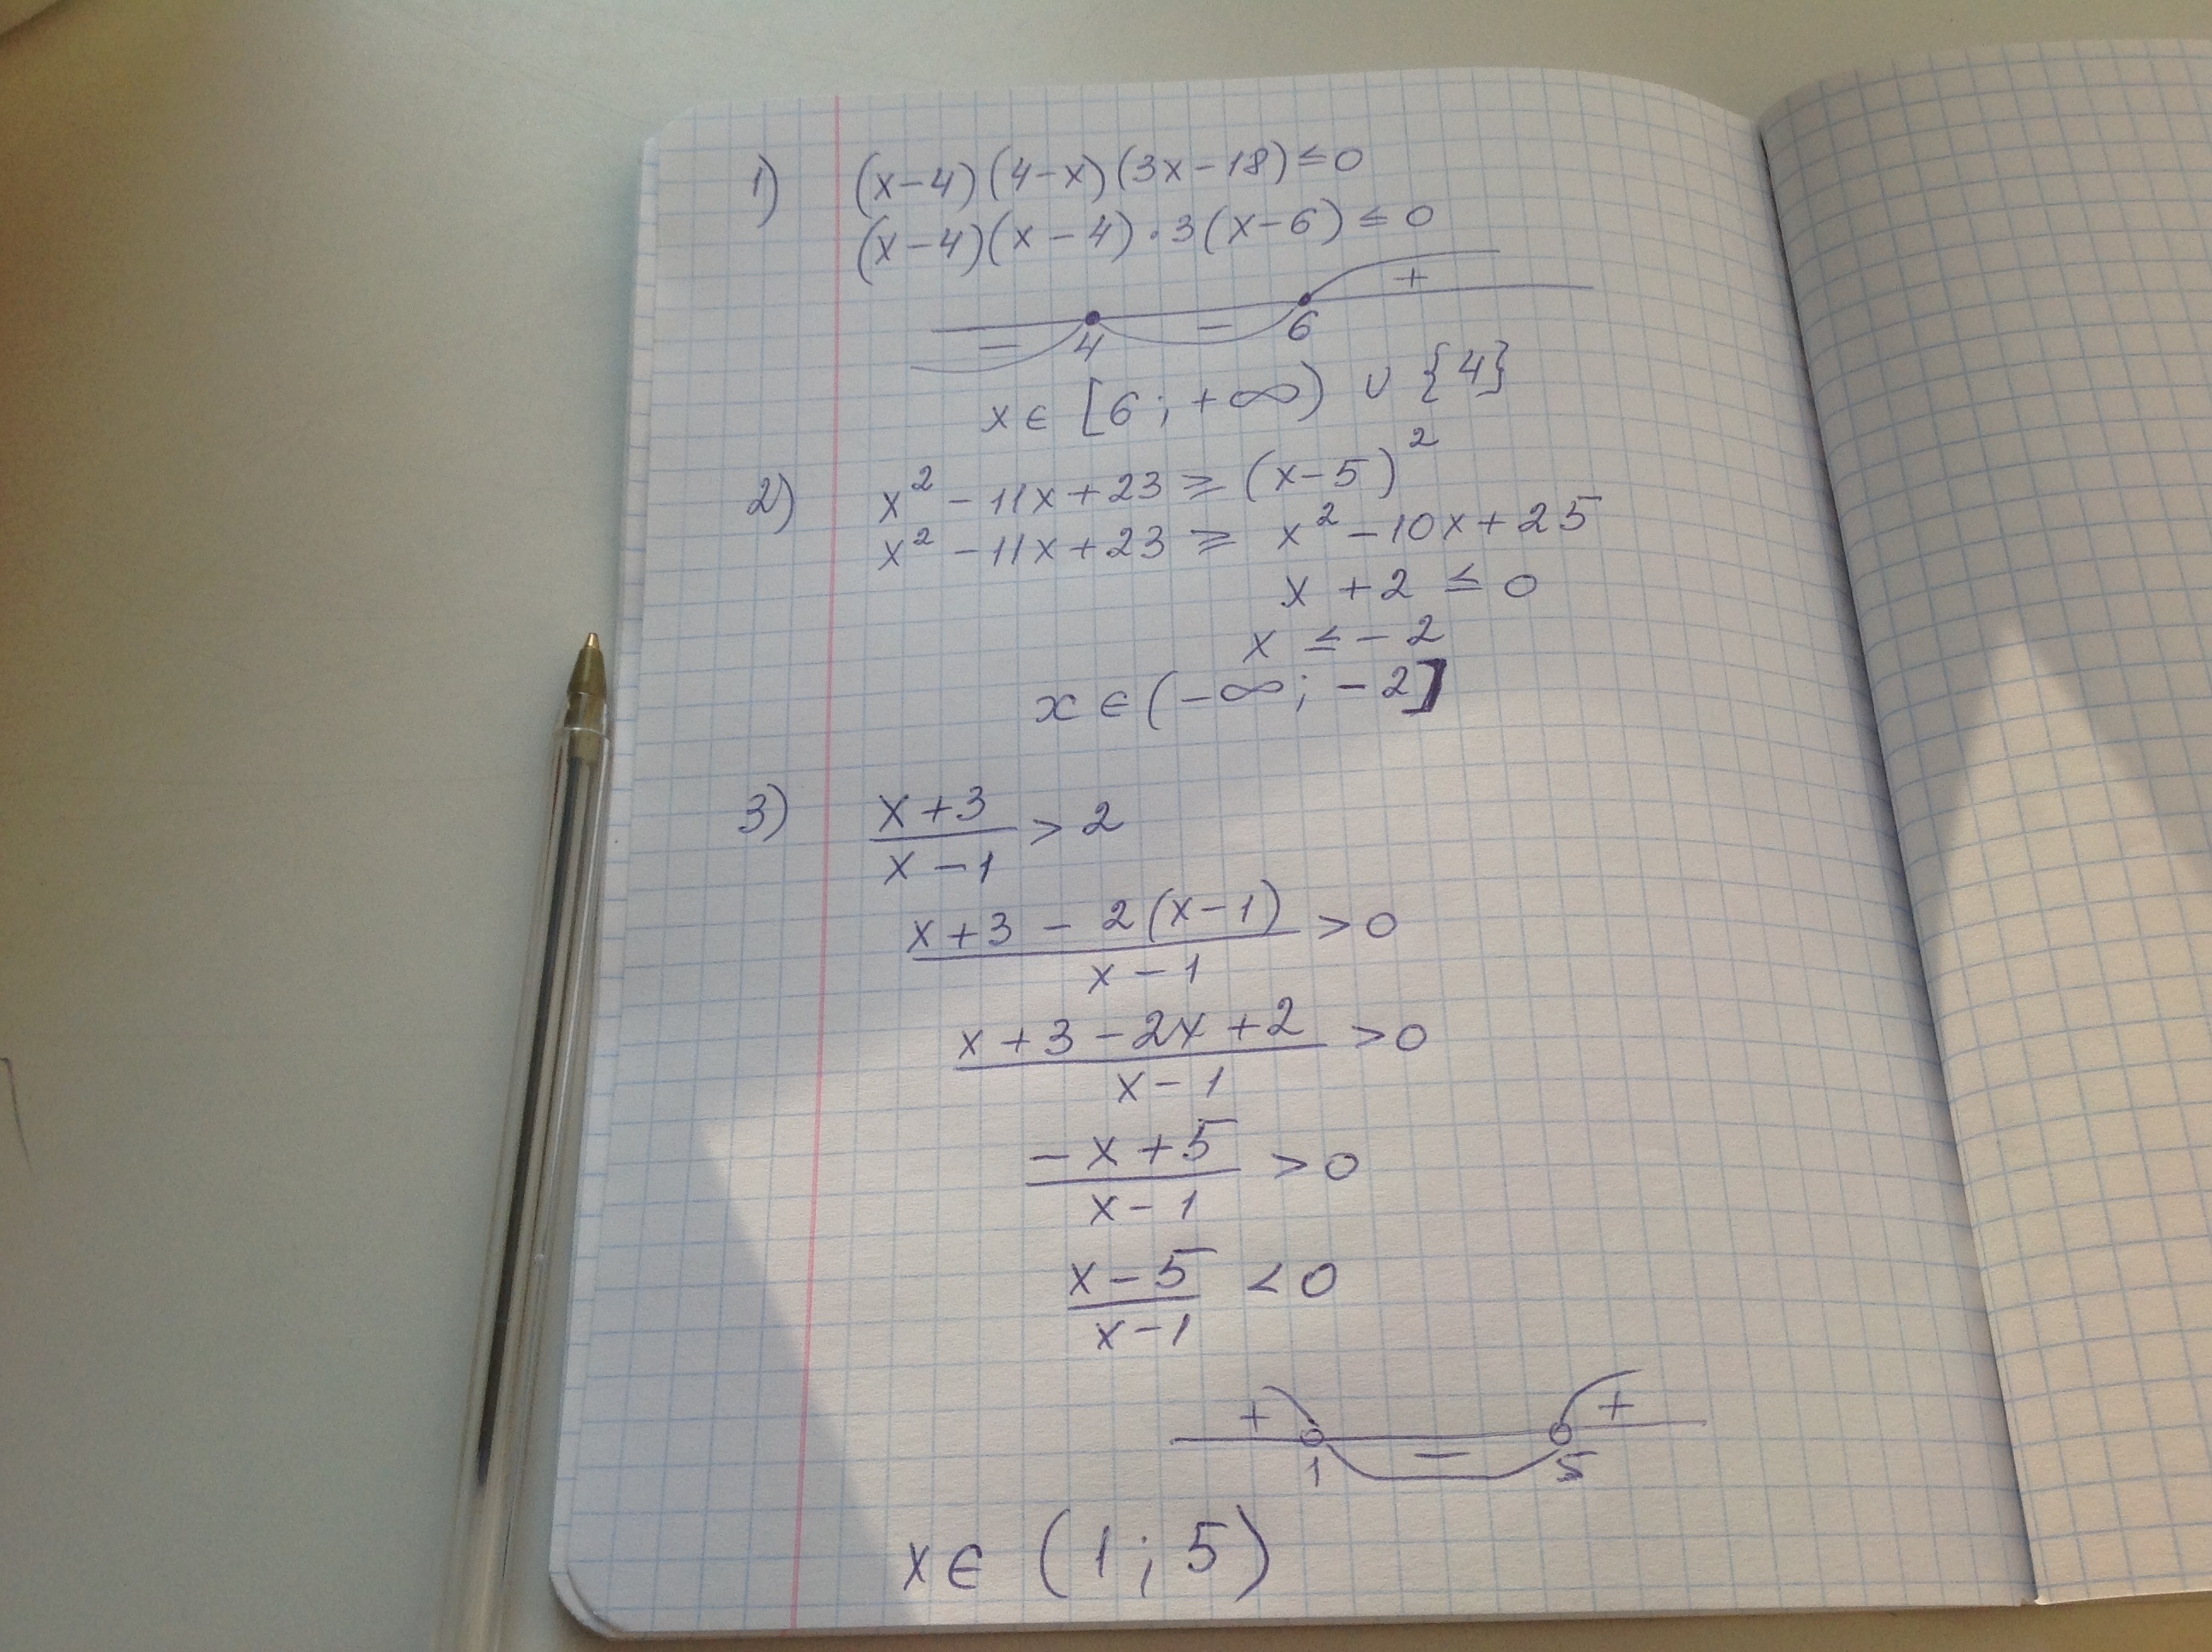 1) (x-4)(4-x)(3x-18)≤0
(x-4)(x-4)·3(x-6)≤0
- 4 - 6 +
x∈[6;+∞)∪{4}
2) x²-11x+23≥(x-5)²
x²-11x+23≥x²-10x+25
x+2≤0
x≤-2
x∈(-∞;-2]
3) (x+3)/(x-1)>2
(x+3-2(x-1))/(x-1)>0
(x+3-2x+2)/(x-1)>0
(-x+5)/(x-1)>0
(x-5)/(x-1)<0
+ 1 - 5 +
x∈(1;5)